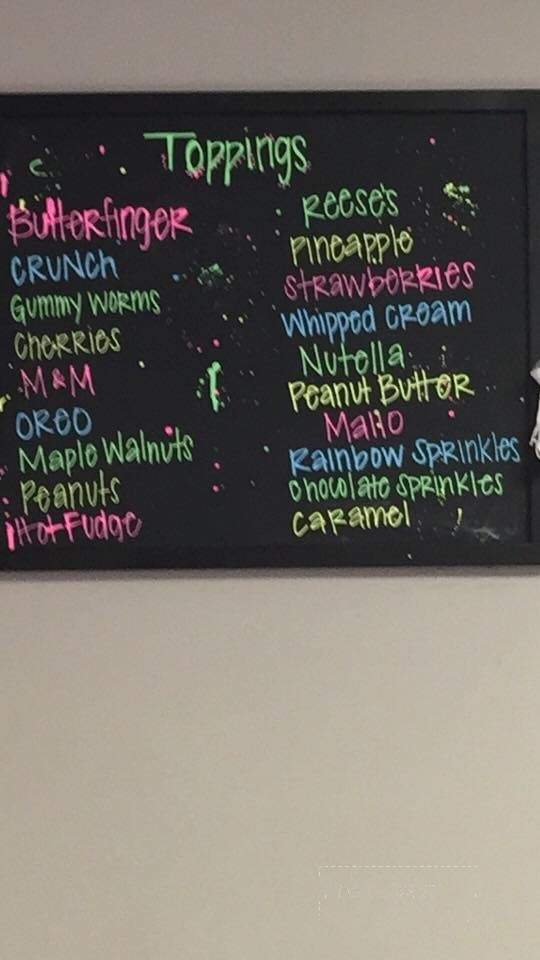 Toppings
Butterfinger
CRUNCh
Gummy WORMS
CheRRies
M&M
OREO
Maple Walnuts
Peanuts
Hot Fudge
ReeSe's
Pineapple
StRawbeRRies
Whipped CReam
Nutella
Peanut ButteR
Mallo
Rainbow SpRinkles
Chocolate SpRinkles
CaRamel